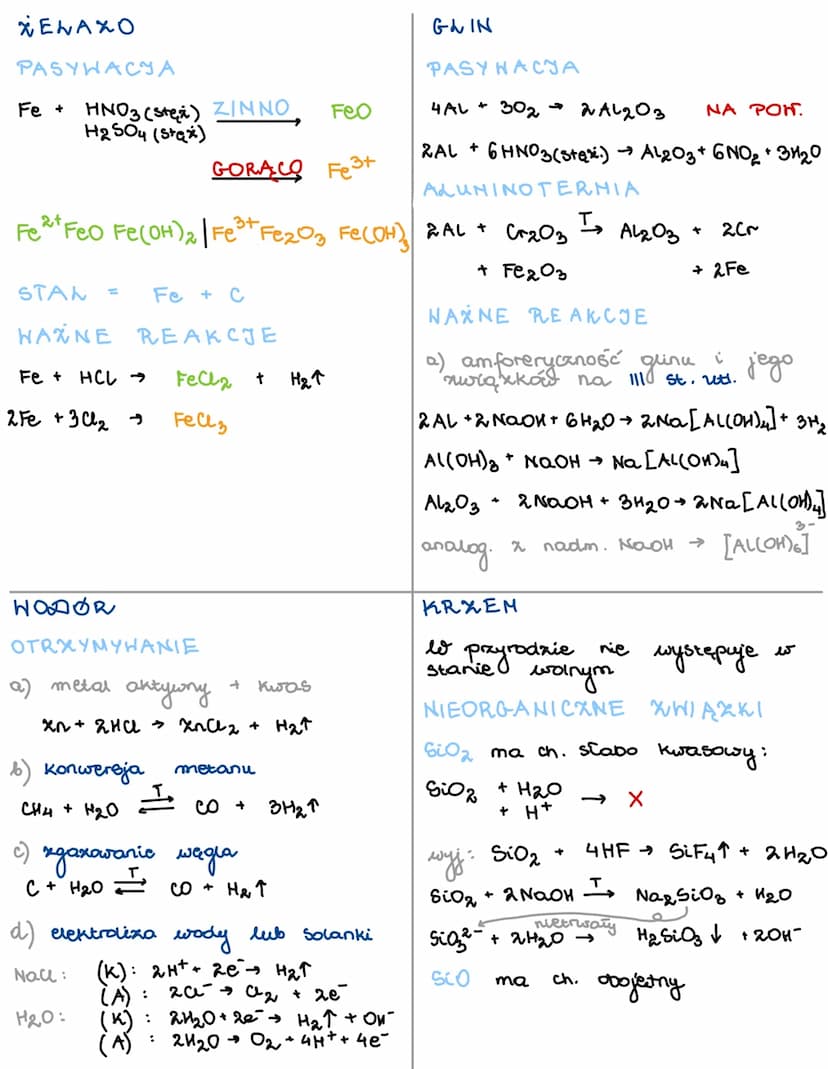 ŻELAZO
PASYWACJA
Fe + HNO3 (stęż) ZIMNO → FeO
H2SO4 (stęż)
GORĄCO → Fe³⁺
Fe²⁺ FeO Fe(OH)2 | Fe³⁺ Fe2O3 Fe(OH)3
STAL = Fe + C
WAŻNE REAKCJE
Fe + HCl → FeCl2 + H2↑
2Fe + 3Cl2 → FeCl3
GLIN
PASYWACJA
4Al + 3O2 → 2Al2O3 NA POW.
2Al + 6HNO3 (stęż.) → Al2O3 + 6NO2 + 3H2O
ALUMINOTERMIA
2Al + Cr2O3 T→ Al2O3 + 2Cr
+ Fe2O3 + 2Fe
WAŻNE REAKCJE
a) amforeryczność glinu i jego
związków na III st. utl.
2Al + 2NaOH + 6H2O → 2Na[Al(OH)4] + 3H2
Al(OH)3 + NaOH → Na[Al(OH)4]
Al2O3 + 2NaOH + 3H2O → 2Na[Al(OH)4]
analog. z nadm. NaOH → [Al(OH)6]³⁻
WODÓR
OTRZYMYWANIE
a) metal aktywny + kwas
Zn + 2HCl → ZnCl2 + H2↑
b) konwersja metanu
CH4 + H2O T⇌ CO + 3H2↑
c) zgazowanie węgla
C + H2O T⇌ CO + H2↑
d) elektroliza wody lub solanki
NaCl: (K): 2H⁺ + 2e⁻ → H2↑
(A): 2Cl⁻ → Cl2 + 2e⁻
H2O: (K): 2H2O + 2e⁻ → H2↑ + OH⁻
(A): 2H2O → O2 + 4H⁺ + 4e⁻
KRZEM
W przyrodzie nie występuje w
stanie wolnym
NIEORGANICZNE ZWIĄZKI
SiO2 ma ch. słabo kwasowy:
SiO2 + H2O → X
+ H⁺
wyj: SiO2 + 4HF → SiF4↑ + 2H2O
SiO2 + 2NaOH T→ Na2SiO3 + H2O
nietrwały
SiO3²⁻ + 2H2O → H2SiO3↓ + 2OH⁻
SiO ma ch. obojętny